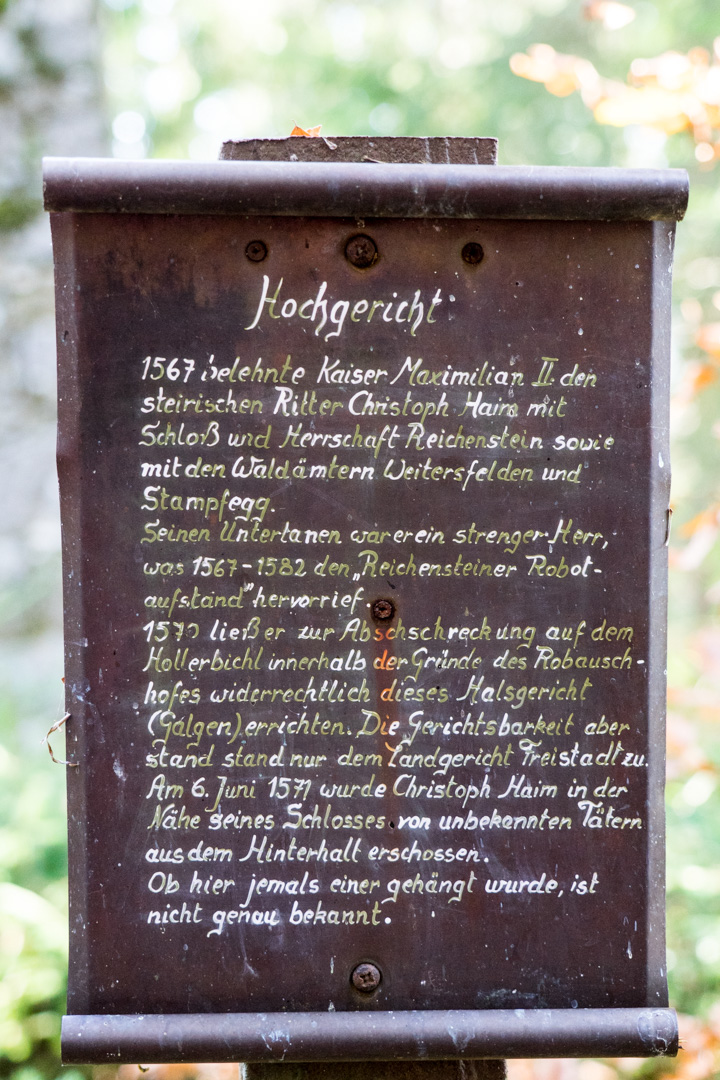 Hochgericht
1567 belehnte Kaiser Maximilian II. den
steirischen Ritter Christoph Haim mit
Schloß und Herrschaft Reichenstein sowie
mit den Waldämtern Weitersfelden und
Stampfegg.
Seinen Untertanen war er ein strenger Herr,
was 1567-1582 den „Reichensteiner Robot-
aufstand" hervorrief.
1570 ließ er zur Abschschreckung auf dem
Hollerbichl innerhalb der Gründe des Robausch-
hofes widerrechtlich dieses Halsgericht
(Galgen) errichten. Die Gerichtsbarkeit aber
stand stand nur dem Landgericht Freistadt zu.
Am 6. Juni 1571 wurde Christoph Haim in der
Nähe seines Schlosses von unbekannten Tätern
aus dem Hinterhalt erschossen.
Ob hier jemals einer gehängt wurde, ist
nicht genau bekannt.